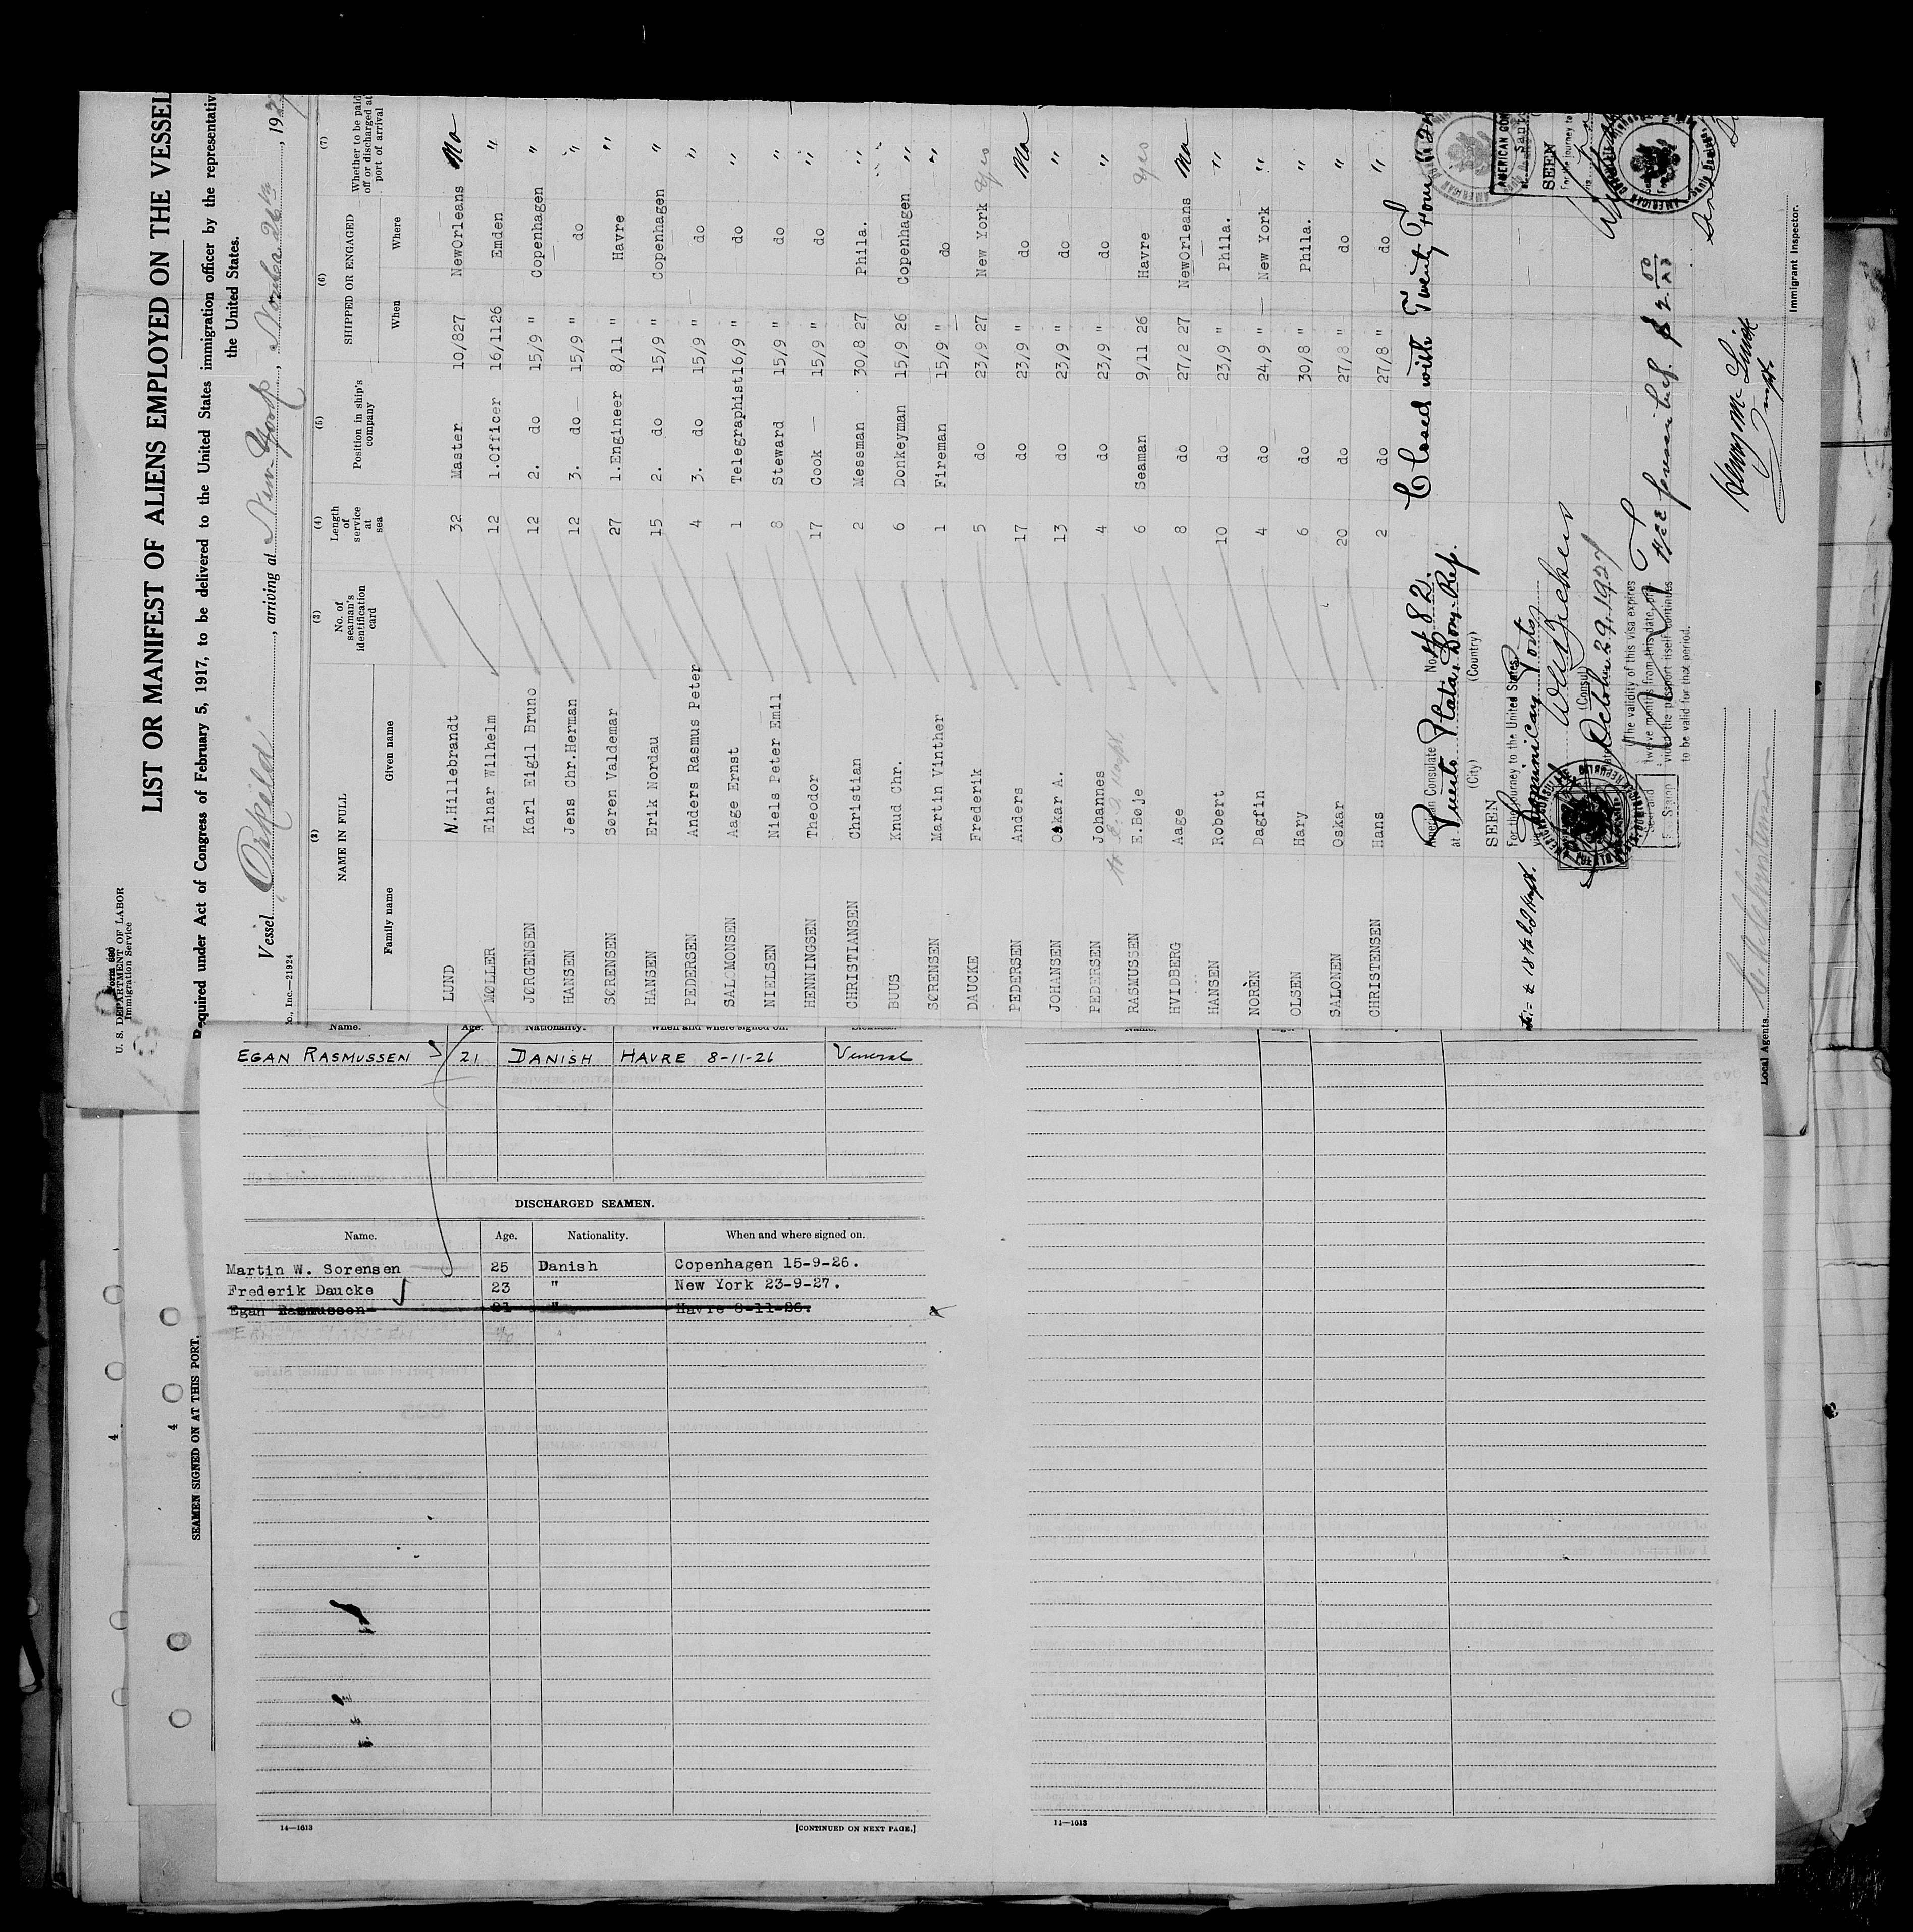 Form 680
U. S. DEPARTMENT OF LABOR
Immigration Service
LIST OR MANIFEST OF ALIENS EMPLOYED ON THE VESSEL
Required under Act of Congress of February 5, 1917, to be delivered to the United States immigration officer by the representative
the United States.
Vessel Orkild, arriving at New York, 192
o., Inc.—21924
(2) (3) (4) (5) (6) (7)
NAME IN FULL No. of seaman's identification card Length of service at sea Position in ship's company SHIPPED OR ENGAGED Whether to be paid off or discharged at port of arrival
Family name Given name When Where
LUND N.Hillebrandt 32 Master 10/827 NewOrleans No
MØLLER Einar Wilhelm 12 1.Officer 16/1126 Emden "
JØRGENSEN Karl Eigil Bruno 12 2. do 15/9 " Copenhagen "
HANSEN Jens Chr.Herman 12 3. do 15/9 " do "
SØRENSEN Søren Valdemar 27 1.Engineer 8/11 " Havre "
HANSEN Erik Nordau 15 2. do 15/9 " Copenhagen "
PEDERSEN Anders Rasmus Peter 4 3. do 15/9 " do "
SALOMONSEN Aage Ernst 1 Telegraphist16/9 " do "
NIELSEN Niels Peter Emil 8 Steward 15/9 " do "
HENNINGSEN Theodor 17 Cook 15/9 " do "
CHRISTIANSEN Christian 2 Messman 30/8 27 Phila. "
BUUS Knud Chr. 6 Donkeyman 15/9 26 Copenhagen "
SØRENSEN Martin Vinther 1 Fireman 15/9 " do "
DAUCKE Frederik 5 do 23/9 27 New York yes
PEDERSEN Anders 17 do 23/9 " do No
JOHANSEN Oskar A. 13 do 23/9 " do "
PEDERSEN Johannes 4 do 23/9 " do "
RASMUSSEN E.Bøje 6 Seaman 9/11 26 Havre yes
HVIDBERG Aage 8 do 27/2 27 NewOrleans No
HANSEN Robert 10 do 23/9 " Phila. "
NORÈN Dagfin 4 do 24/9 " New York "
OLSEN Hary 6 do 30/8 " Phila. "
SALONEN Oskar 20 do 27/8 " do "
CHRISTENSEN Hans 2 do 27/8 " do "
Closed with Twenty Four
American Consulate No. 482.
at Puerto Plata, Dom. Rep.
(City) (Country)
SEEN
For the journey to the United States
via Dominican Ports
(Consul)
October 29, 1927
The validity of this visa expires
twelve months from this date, pro-
vided the passport itself continues
to be valid for that period.
Seal and
Fee Stamp
AMERICAN CON
SEEN
For the journey to
Local Agents
Immigrant Inspector.
Name. Age. Nationality. When and where signed on.
EGAN RASMUSSEN 21 DANISH HAVRE 8-11-26 Veneral
DISCHARGED SEAMEN.
Name. Age. Nationality. When and where signed on.
Martin W. Sorensen 25 Danish Copenhagen 15-9-26.
Frederik Daucke 23 " New York 23-9-27.
Egan Rasmussen 21 " Havre 8-11-26.
14—1613 [CONTINUED ON NEXT PAGE.] 11—1613
SEAMEN SIGNED ON AT THIS PORT.
4
4